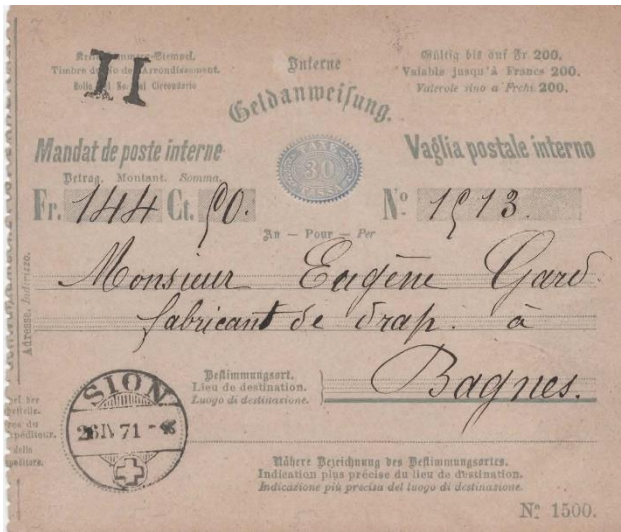 II
Kreis-Nummer-Stempel.
Timbre du No de l'Arrondissement.
Bollo del No. del Circondario
Interne
Geldanweisung.
Gültig bis auf Fr 200.
Valable jusqu'à Francs 200.
Valevole sino a Frchi. 200.
Mandat de poste interne
TAXE
30
TASSA
Vaglia postale interno
Betrag. Montant. Somma.
Fr. 144 Ct. 50.
Nº 1513.
An — Pour — Per
Adresse. Indirizzo.
Monsieur Eugène Gard
fabricant de drap. à
Bestimmungsort.
Lieu de destination.
Luogo di destinazione.
Bagnes.
SION
26 IV 71 - 8
Nähere Bezeichnung des Bestimmungsortes.
Indication plus précise du lieu de destination.
Indicazione più precisa del luogo di destinazione.
Nº 1500.